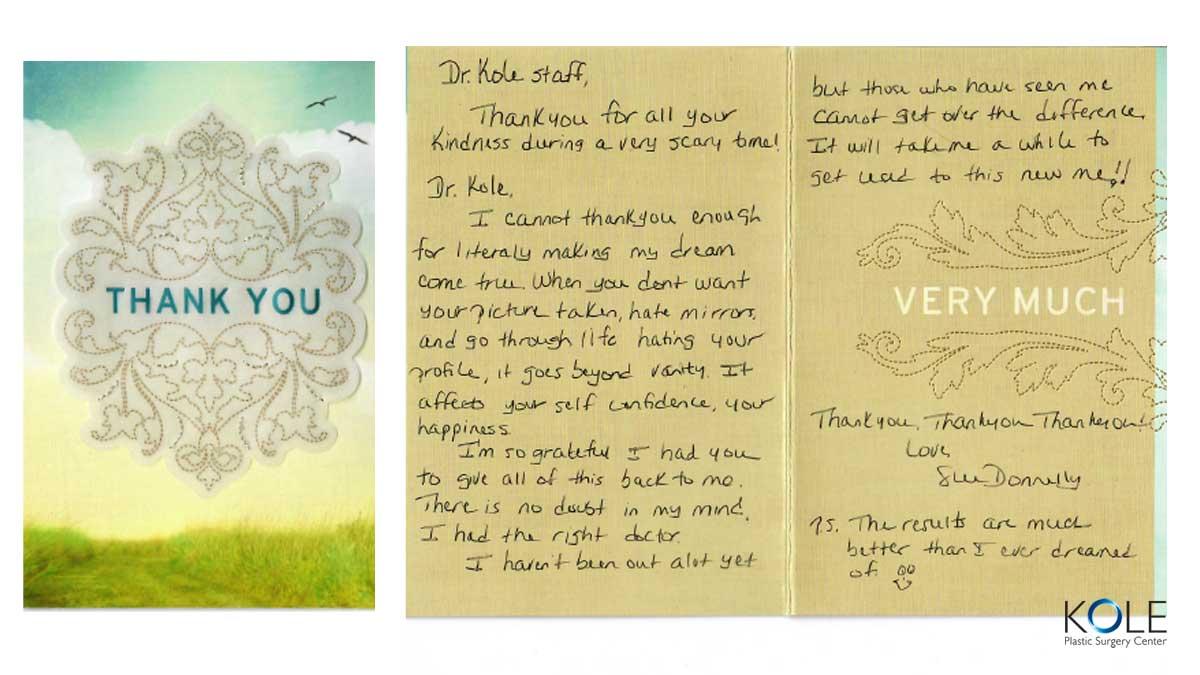 THANK YOU
Dr. Kole staff,
Thankyou for all your
kindness during a very scary time!
Dr. Kole,
I cannot thankyou enough
for literaly making my dream
come true. When you dont want
your picture taken, hate mirrors,
and go through life hating your
profile, it goes beyond vanity. It
affects your self confidence, your
happiness.
I'm so grateful I had you
to give all of this back to me.
There is no doubt in my mind,
I had the right doctor.
I haven't been out alot yet
but those who have seen me
cannot get over the difference.
It will take me a while to
get used to this new me!!
VERY MUCH
Thankyou, Thankyou Thankyou!
Love,
Sue Donnelly
P.S. The results are much
better than I ever dreamed
of.
KOLE
Plastic Surgery Center